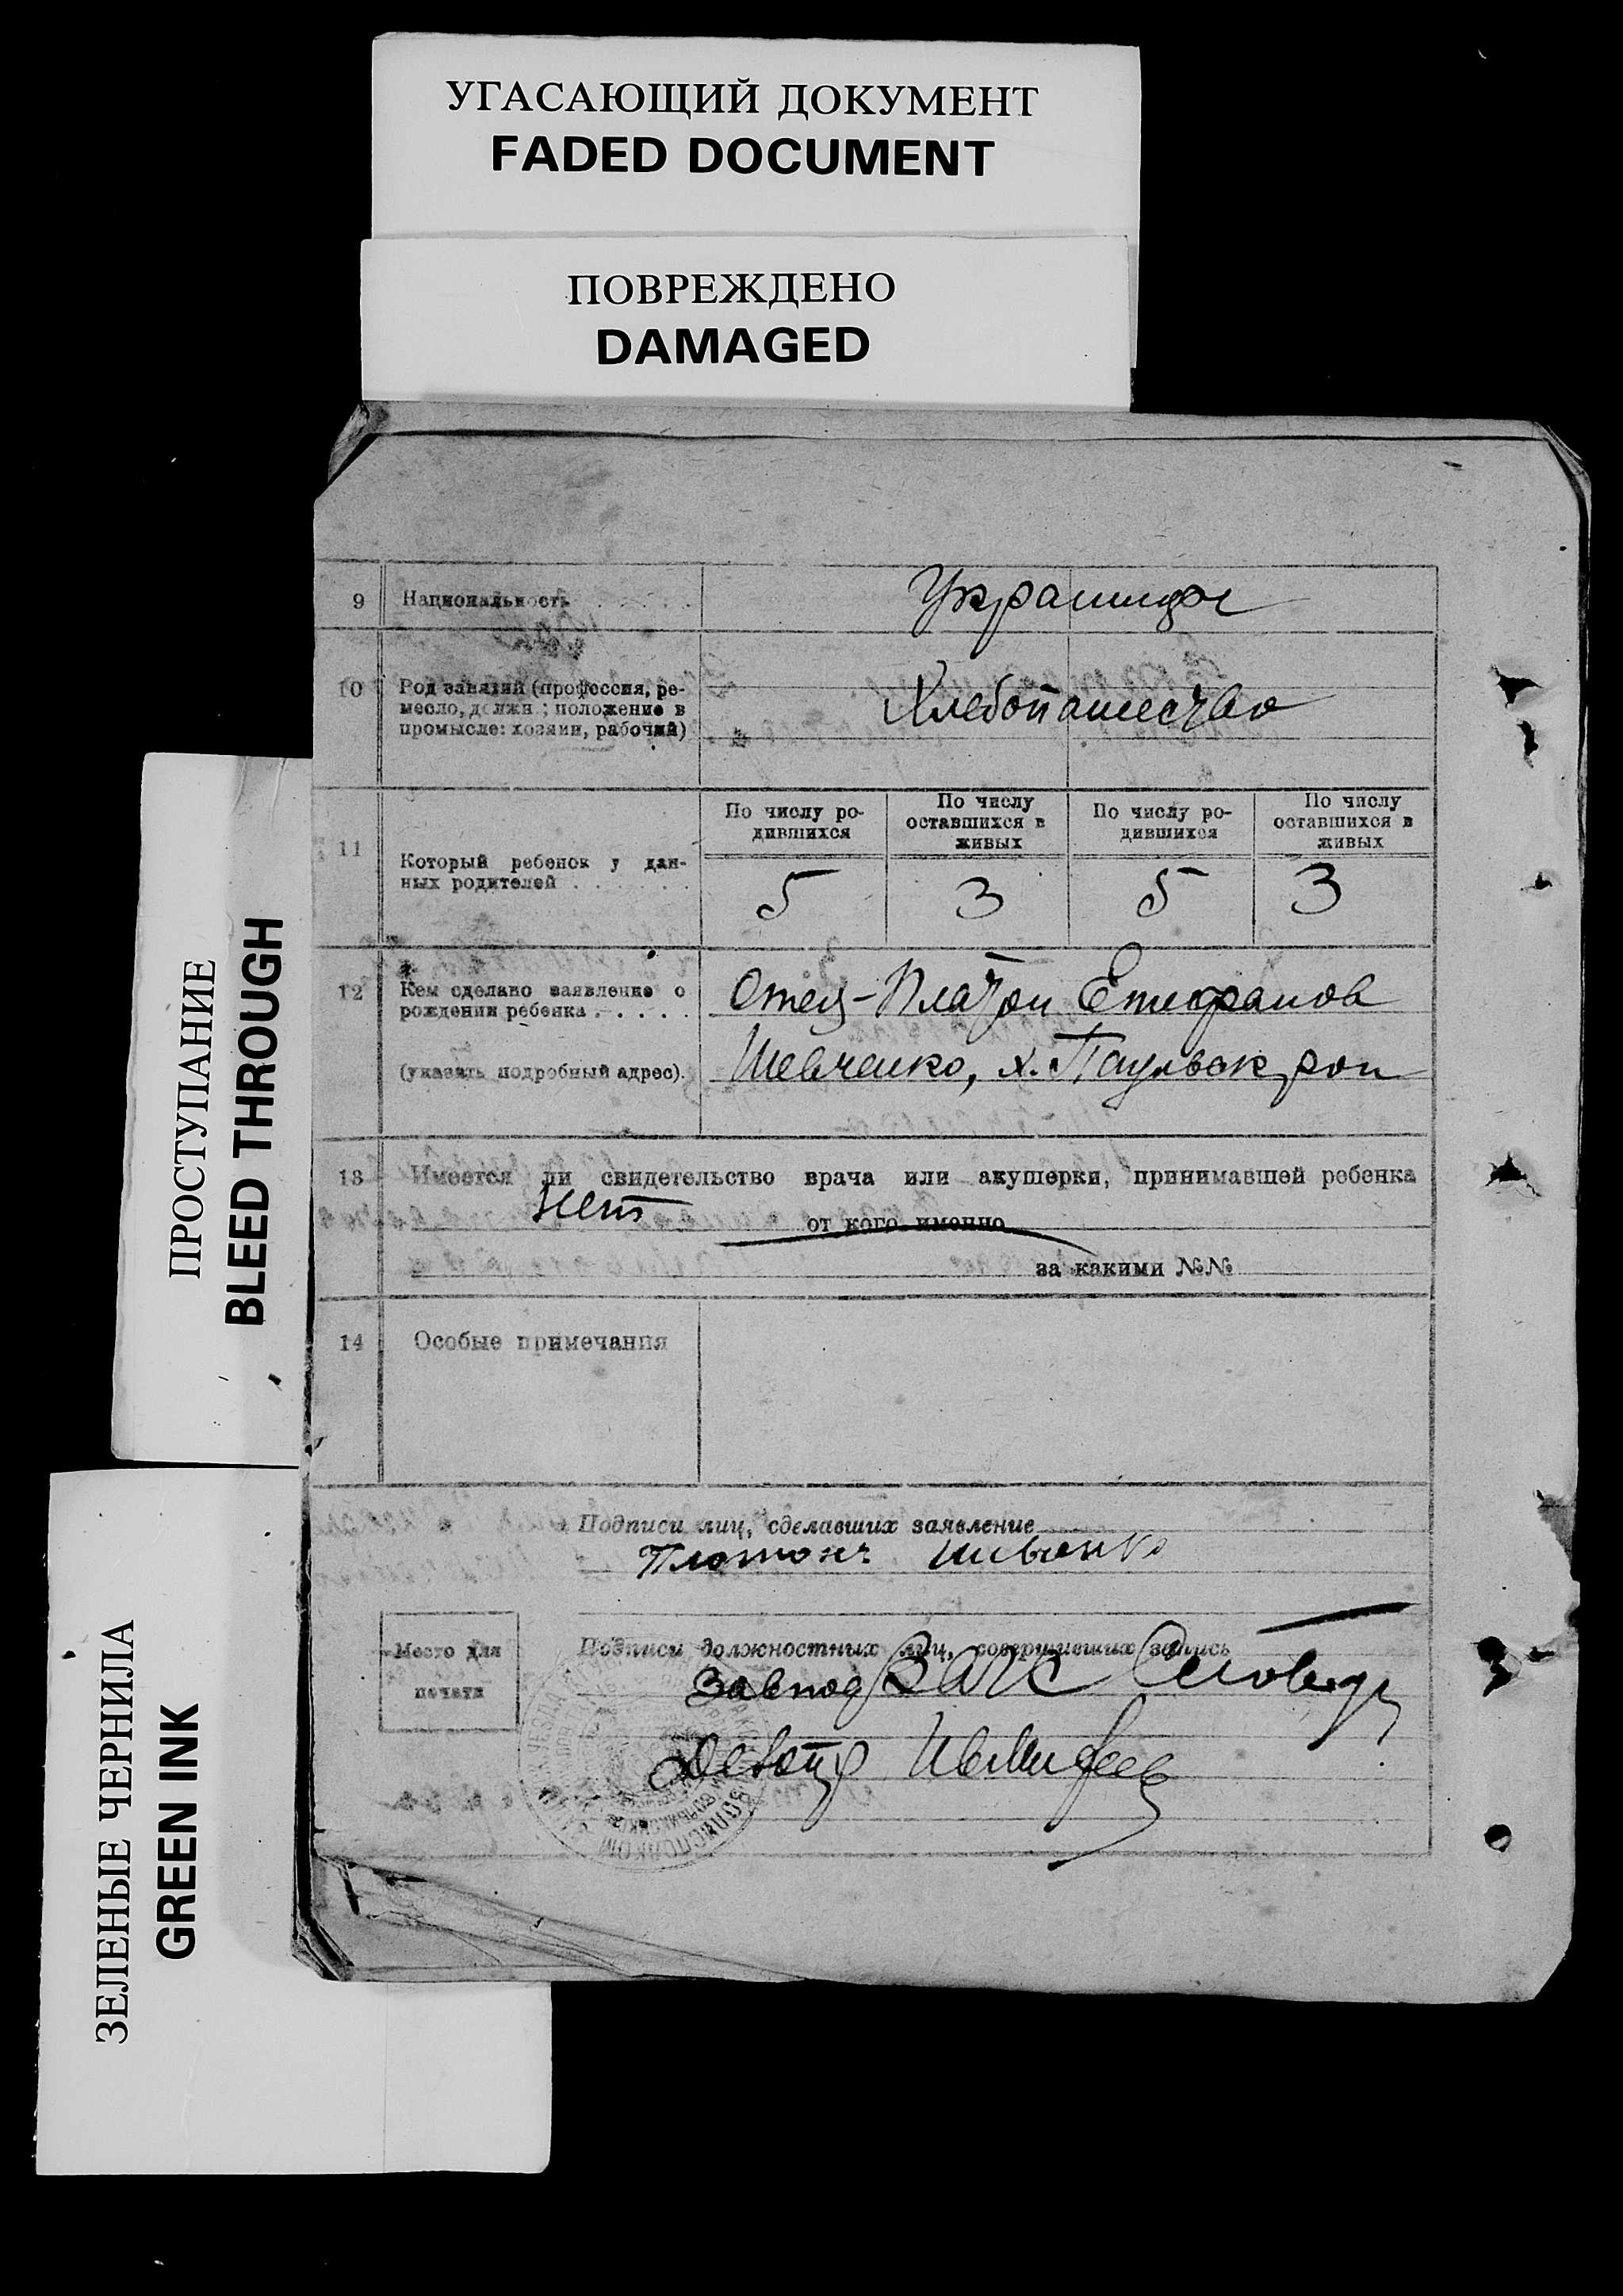 УГАСАЮЩИЙ ДОКУМЕНТ
FADED DOCUMENT
ПОВРЕЖДЕНО
DAMAGED
ПРОСТУПАНИЕ
BLEED THROUGH
ЗЕЛЕНЫЕ ЧЕРНИЛА
GREEN INK
9 Национальность Украинцы
10 Род занятий (профессия, ре-
месло, должн.; положение в
промысле: хозяин, рабочий)
Хлебопашество
По числу ро-
дившихся
По числу
оставшихся в
живых
По числу ро-
дившихся
По числу
оставшихся в
живых
11 Который ребенок у дан-
ных родителей
5 3 5 3
12 Кем сделано заявление о
рождении ребенка
(указать подробный адрес).
Отец - Платон Епифанов
Шевченко, х.
13 Имеется ли свидетельство врача или акушерки, принимавшей ребенка
нет от кого именно
за какими №№
14 Особые примечания
Подписи лиц, сделавших заявление
Место для
печати
Подписи должностных лиц, совершивших запись
Завпод ЗАГС